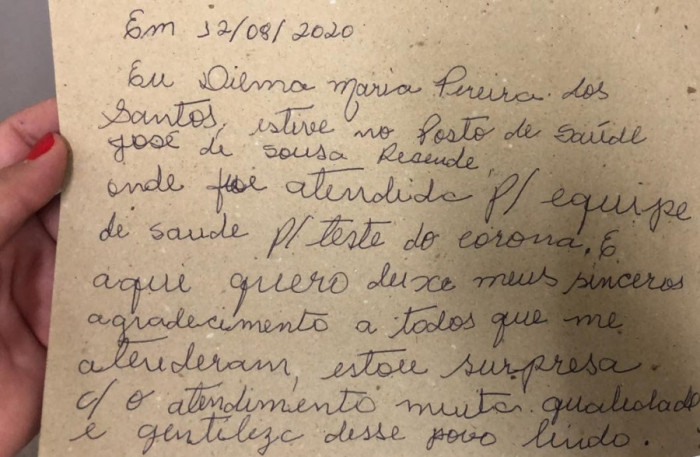 Em 12/08/2020
Eu Dilma Maria Pereira dos
Santos, estive no Posto de Saúde
José de Sousa Rezende,
onde fue atendida p/ equipe
de saude p/ teste do corona. E
aque quero deixo meus sinceros
agradecimento a todos que me
atenderam, estou surpresa
c/ o atendimento muita qualidade
e gentileza desse povo lindo.